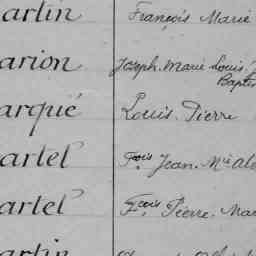 artin François Marie
arion Joseph. Marie Louis.
Baptis
arqué Louis. Pierre
artel Fçois Jean. Mie Ale
artel Fçois Pierre. Mar
artin